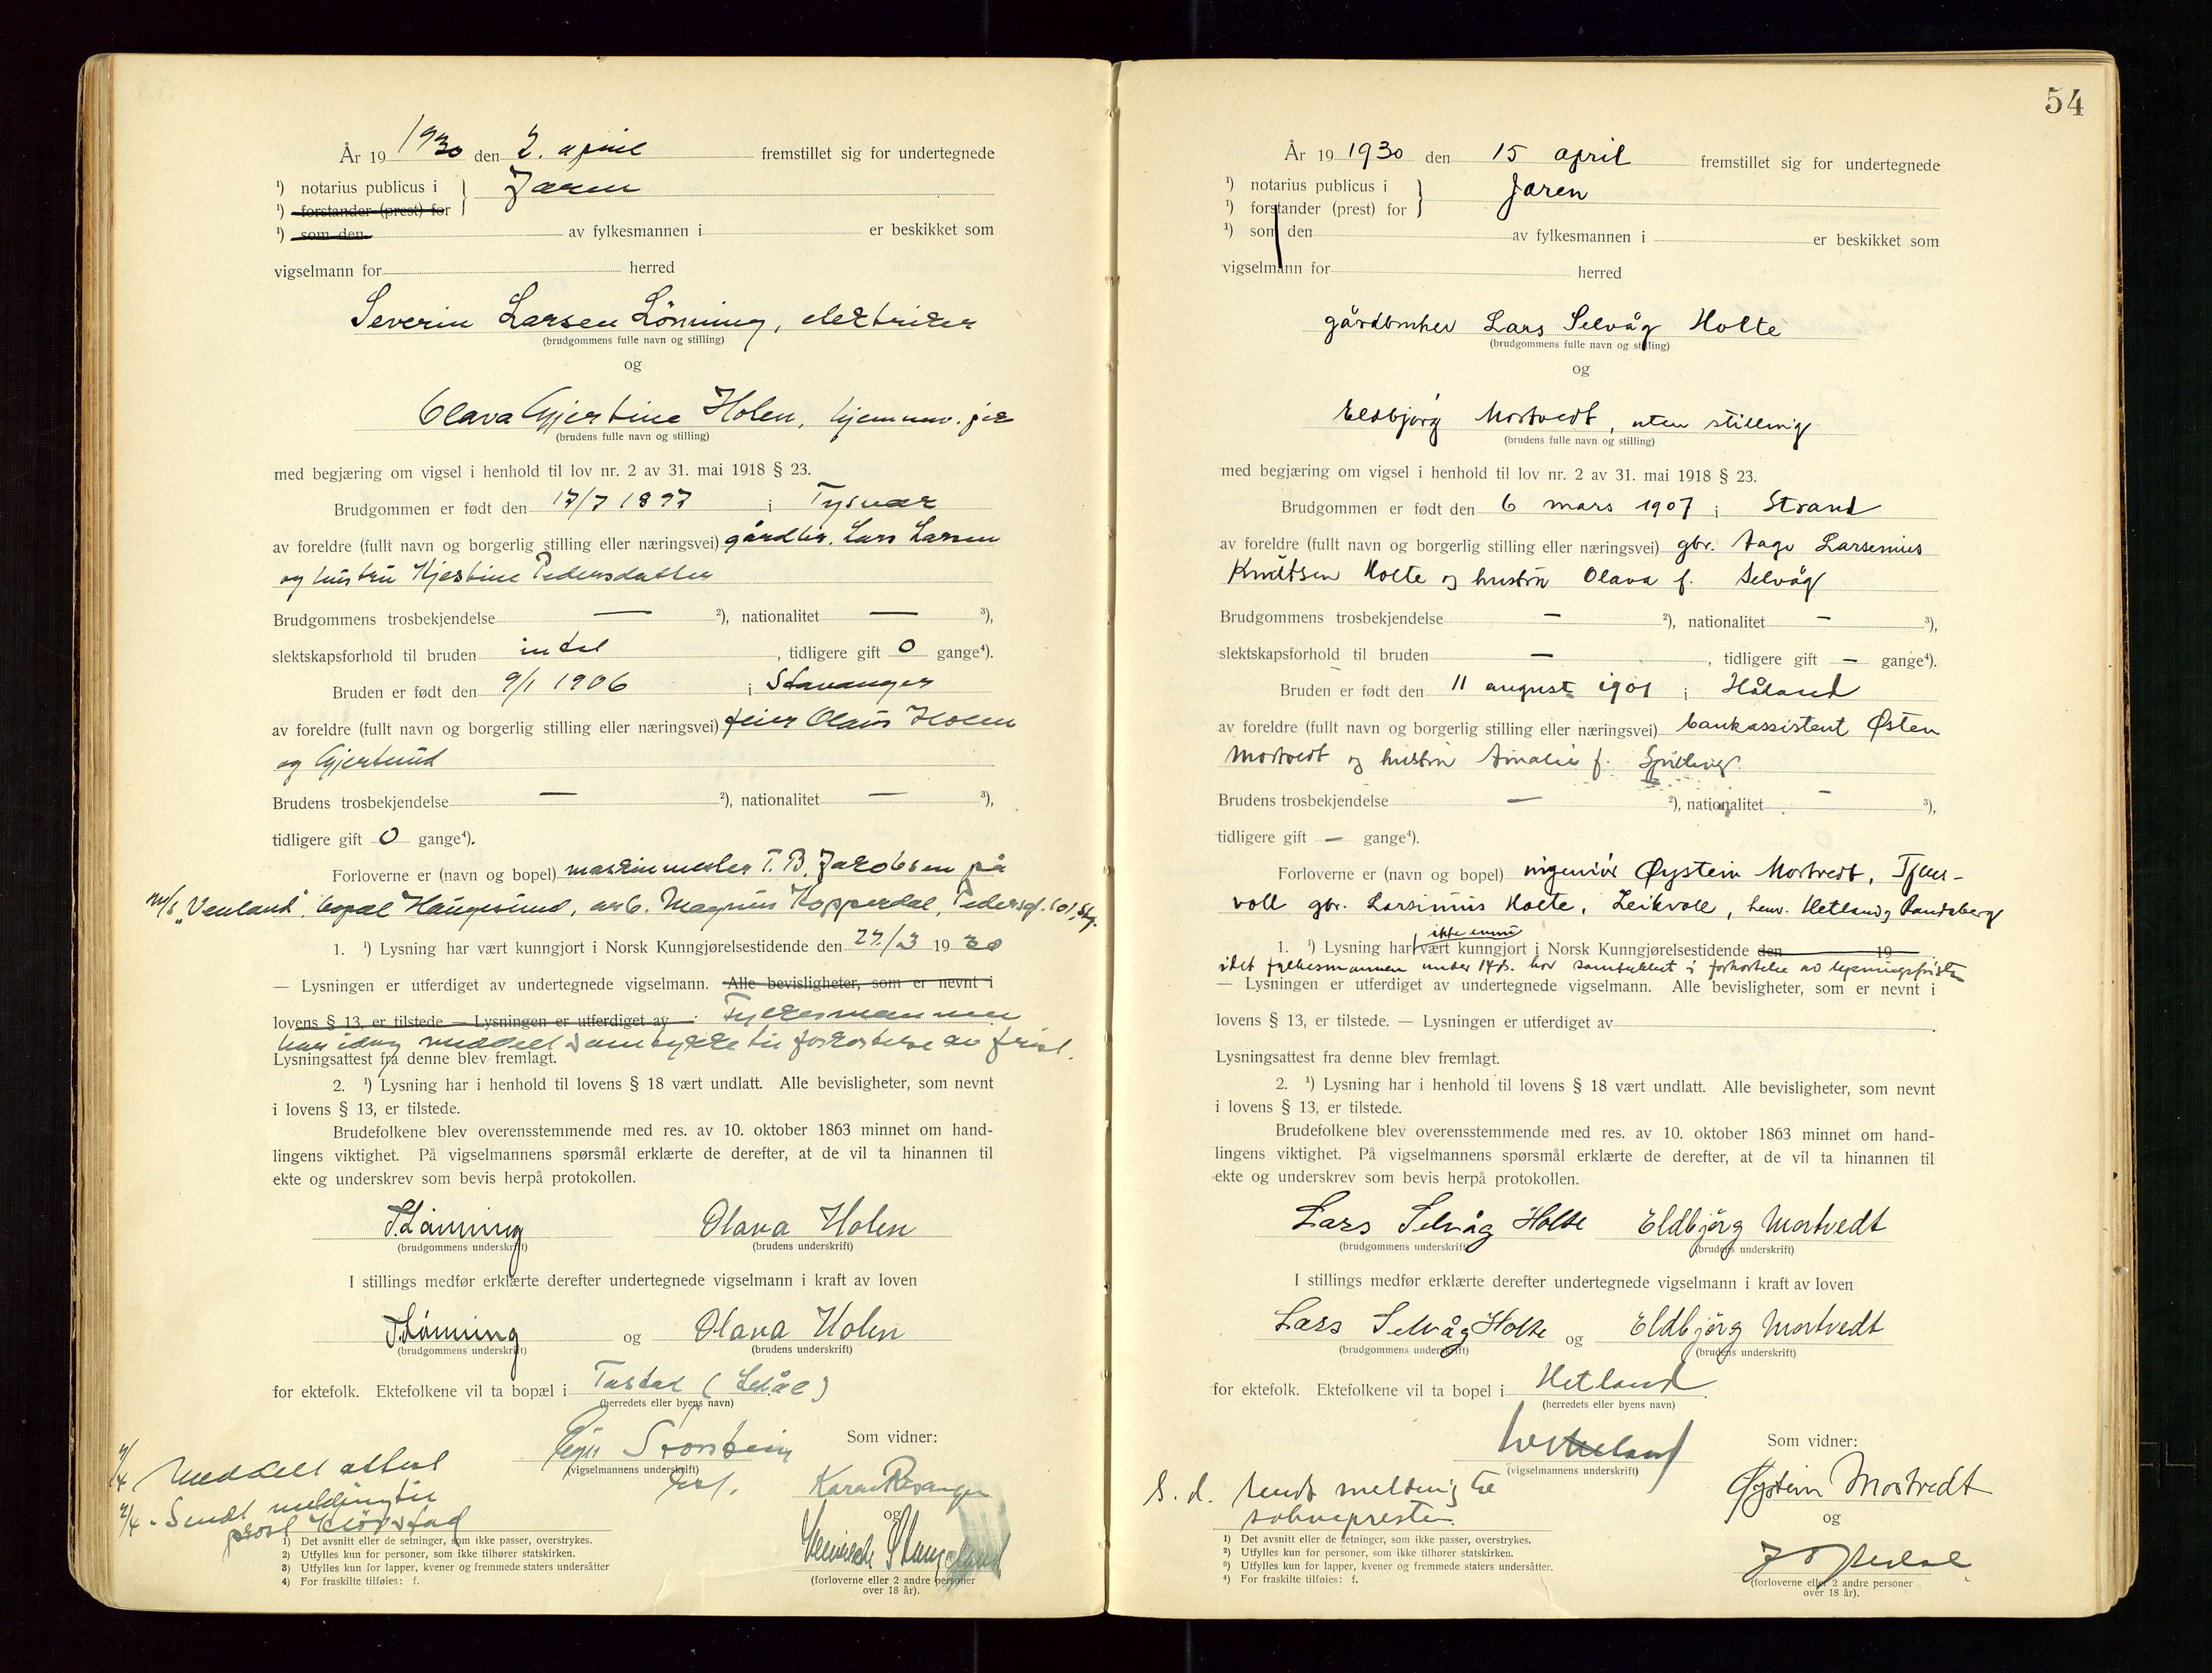 År 19 1930 den 2. april fremstillet sig for undertegnede
¹) notarius publicus i } Jæren
¹) forstander (prest) for
¹) som den av fylkesmannen i er beskikket som
vigselmann for herred
Severin Larsen Lönning, elektriker
(brudgommens fulle navn og stilling)
og
Olava Gjertine Holen, hjemmev.
(brudens fulle navn og stilling)
med begjæring om vigsel i henhold til lov nr. 2 av 31. mai 1918 § 23.
Brudgommen er født den 17/7 1897 i Tysvær
av foreldre (fullt navn og borgerlig stilling eller næringsvei) gårdbr. Lars Larsen
og hustru Kjerstine Pedersdatter
Brudgommens trosbekjendelse — ²), nationalitet — ³),
slektskapsforhold til bruden intet, tidligere gift 0 gange⁴).
Bruden er født den 9/1 1906 i Stavanger
av foreldre (fullt navn og borgerlig stilling eller næringsvei) feier Olaus Holen
og Gjertrud
Brudens trosbekjendelse — ²), nationalitet — ³),
tidligere gift 0 gange⁴).
Forloverne er (navn og bopel) maskinmester T. B. Jakobsen på
m/s "Venland", bopæl Haugesund, arb. Magnus Kopperdal, Pedersgt. 101, Stg.
1. ¹) Lysning har vært kunngjort i Norsk Kunngjørelsestidende den 27./3 19 30
— Lysningen er utferdiget av undertegnede vigselmann. Alle bevisligheter, som er nevnt i
lovens § 13, er tilstede — Lysningen er utferdiget av Fylkesmannen
har idag meddelt samtykke til forkortelse av frist.
Lysningsattest fra denne blev fremlagt.
2. ¹) Lysning har i henhold til lovens § 18 vært undlatt. Alle bevisligheter, som nevnt
i lovens § 13, er tilstede.
Brudefolkene blev overensstemmende med res. av 10. oktober 1863 minnet om hand-
lingens viktighet. På vigselmannens spørsmål erklærte de derefter, at de vil ta hinannen til
ekte og underskrev som bevis herpå protokollen.
S. Lönning Olava Holen
(brudgommens underskrift) (brudens underskrift)
I stillings medfør erklærte derefter undertegnede vigselmann i kraft av loven
S. Lönning og Olava Holen
(brudgommens underskrift) (brudens underskrift)
for ektefolk. Ektefolkene vil ta bopæl i Tastad
(herredets eller byens navn)
Storstein Som vidner:
(vigselmannens underskrift)
Karen Revanger
og
Stangeland
(forloverne eller 2 andre personer
over 18 år).
2/4 Meddelt attest
2/4 - Sendt melding til
prost
1) Det avsnitt eller de setninger, som ikke passer, overstrykes.
2) Utfylles kun for personer, som ikke tilhører statskirken.
3) Utfylles kun for lapper, kvener og fremmede staters undersåtter
4) For fraskilte tilføies: f.
54
År 19 1930 den 15 april fremstillet sig for undertegnede
¹) notarius publicus i } Jæren
¹) forstander (prest) for
¹) som den av fylkesmannen i er beskikket som
vigselmann for herred
gårdbruker Lars Selvåg Holte
(brudgommens fulle navn og stilling)
og
Eldbjørg Mortvedt, uten stilling
(brudens fulle navn og stilling)
med begjæring om vigsel i henhold til lov nr. 2 av 31. mai 1918 § 23.
Brudgommen er født den 6 mars 1907 i Strand
av foreldre (fullt navn og borgerlig stilling eller næringsvei) gbr. Aage Larsenius
Knudtsen Holte og hustru Olava f. Selvåg
Brudgommens trosbekjendelse — ²), nationalitet — ³),
slektskapsforhold til bruden —, tidligere gift — gange⁴).
Bruden er født den 11 august 1901 i Håland
av foreldre (fullt navn og borgerlig stilling eller næringsvei) bankassistent Østen
Mortvedt og hustru Amalie f.
Brudens trosbekjendelse — ²), nationalitet — ³),
tidligere gift — gange⁴).
Forloverne er (navn og bopel) ingeniør Øystein Mortvedt, Tjens-
voll gbr. Larsinius Holte, Leikvoll, henv. Hetland og Randaberg
ikke ennu
1. ¹) Lysning har vært kunngjort i Norsk Kunngjørelsestidende den 19
idet fylkesmannen under 14 ds. har samtykket i forkortelse av lysningsfristen
— Lysningen er utferdiget av undertegnede vigselmann. Alle bevisligheter, som er nevnt i
lovens § 13, er tilstede. — Lysningen er utferdiget av
Lysningsattest fra denne blev fremlagt.
2. ¹) Lysning har i henhold til lovens § 18 vært undlatt. Alle bevisligheter, som nevnt
i lovens § 13, er tilstede.
Brudefolkene blev overensstemmende med res. av 10. oktober 1863 minnet om hand-
lingens viktighet. På vigselmannens spørsmål erklærte de derefter, at de vil ta hinannen til
ekte og underskrev som bevis herpå protokollen.
Lars Selvåg Holte Eldbjörg Mortvedt
(brudgommens underskrift) (brudens underskrift)
I stillings medfør erklærte derefter undertegnede vigselmann i kraft av loven
Lars Selvåg Holte og Eldbjörg Mortvedt
(brudgommens underskrift) (brudens underskrift)
for ektefolk. Ektefolkene vil ta bopel i Hetland
(herredets eller byens navn)
Som vidner:
(vigselmannens underskrift)
Øystein Mortvedt
og
(forloverne eller 2 andre personer
over 18 år).
S. d. sendt melding til
sokneprest
1) Det avsnitt eller de setninger, som ikke passer, overstrykes.
²) Utfylles kun for personer, som ikke tilhører statskirken.
³) Utfylles kun for lapper, kvener og fremmede staters undersåtter.
⁴) For fraskilte tilføies: f.